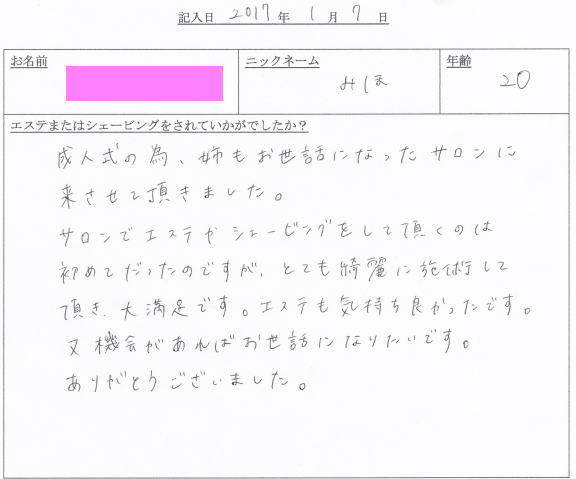 記入日 2017 年 1 月 7 日
お名前 ニックネーム 年齢
みほ 20
エステまたはシェービングをされていかがでしたか？
成人式の為、姉もお世話になったサロンに
来させて頂きました。
サロンでエステやシェービングをして頂くのは
初めてだったのですが、とても綺麗に施術して
頂き、大満足です。エステも気持ち良かったです。
又機会があればお世話になりたいです。
ありがとうございました。